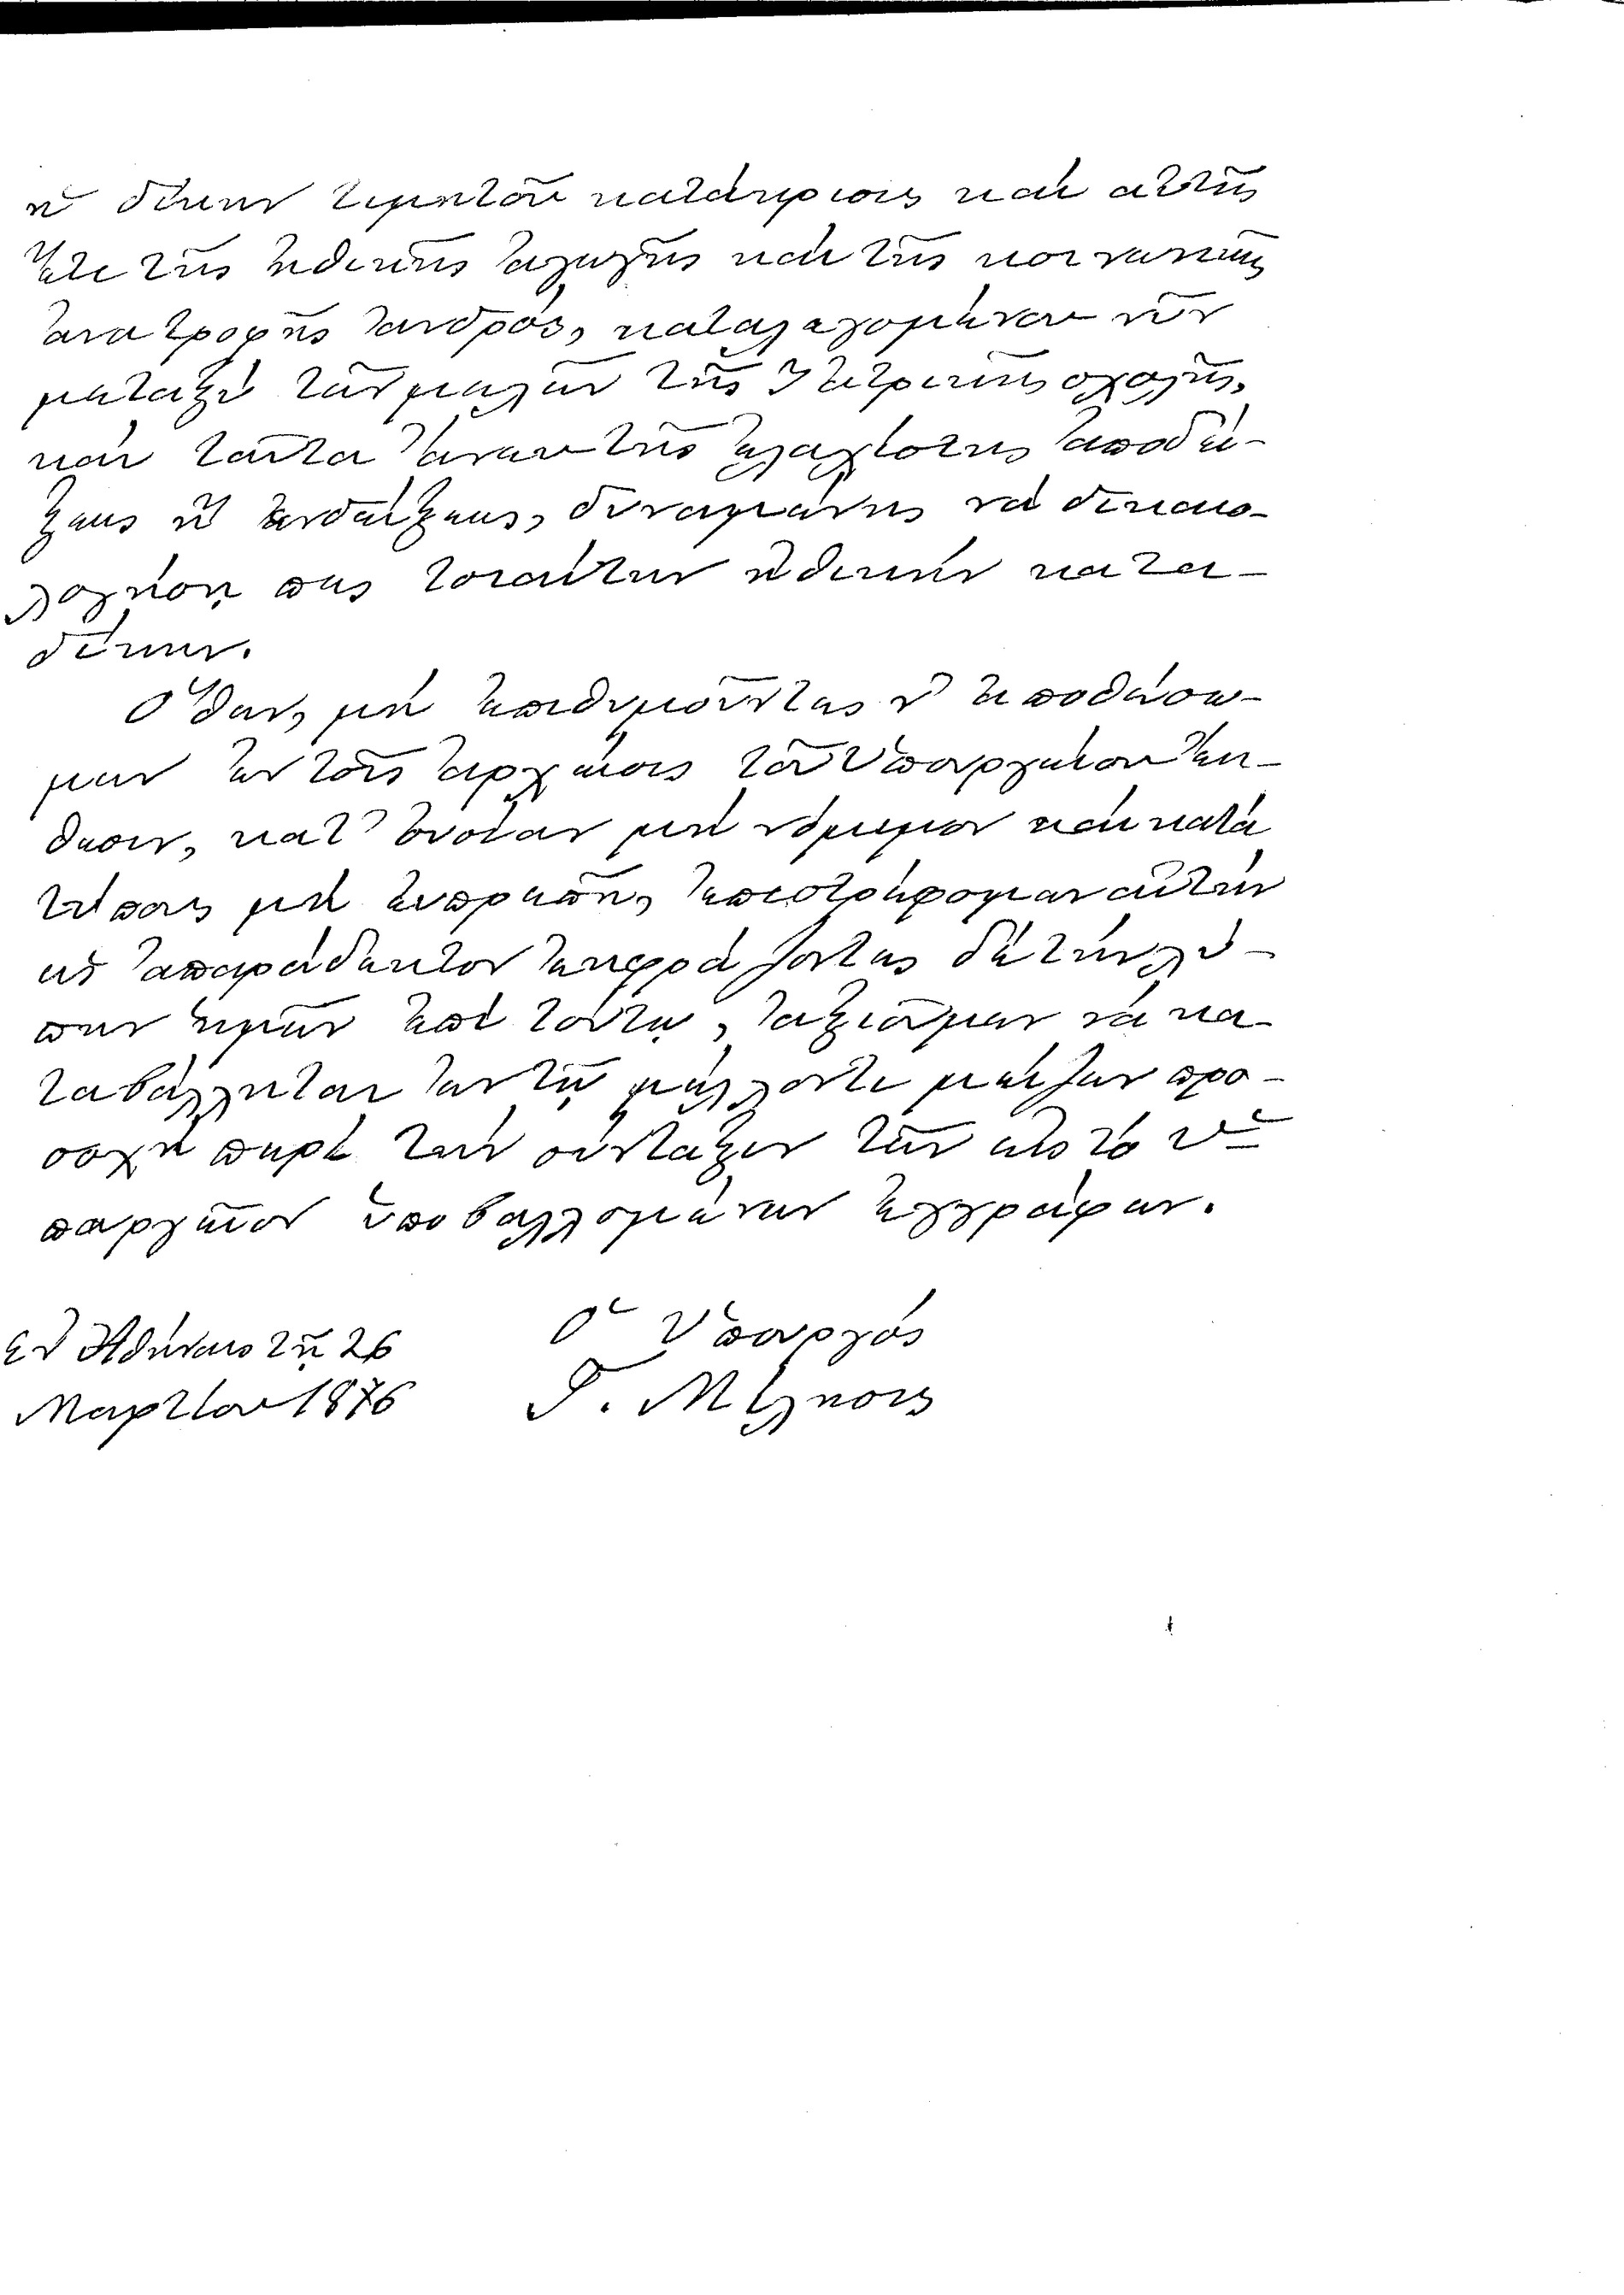 ἡ δίκην τιμητοῦ κατάκρισις καὶ αὐτῆς
ἔτι τῆς ἠθικῆς ἀγωγῆς καὶ τῆς κοινωνικῆς
ἀνατροφῆς ἀνδρός, καταλεγομένου νῦν
μεταξὺ τῶν μελῶν τῆς Ἰατρικῆς σχολῆς,
καὶ ταῦτα ἄνευ τῆς ἐλαχίστης ἀποδεί-
ξεως ἢ ἐνδείξεως, δυναμένης νὰ δικαιο-
λογήσῃ πως τοιαύτην ἠθικὴν κατα-
δίκην.
Ὅθεν, μὴ ἐπιθυμοῦντες ν' ἐναποθέσω-
μεν ἐν τοῖς ἀρχείοις τοῦ Ὑπουργείου ἔκ-
θεσιν, κατ' οὐσίαν μὴ νόμιμον καὶ κατὰ
τύπους μὴ εὐπρεπῆ, ἐπιστρέφομεν αὐτὴν
ὡς ἀπαράδεκτον ἐκφράζοντες δὲ τὴν λύ-
πην ἡμῶν ἐπὶ τούτῳ, ἀξιοῦμεν νὰ κα-
ταβάλληται ἐν τῷ μέλλοντι μείζων προ-
σοχὴ περὶ τὴν σύνταξιν τῶν εἰς τὸ Ὑ-
πουργεῖον ὑποβαλλομένων ἐγγράφων.
Ἐν Ἀθήναις τῇ 26
Μαρτίου 1876
Ὁ Ὑπουργός
Γ. Μίλησις